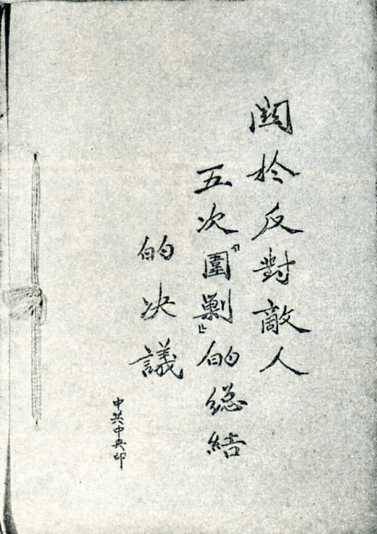 關於反對敵人
五次「圍剿」的總結
的决議
中共中央印